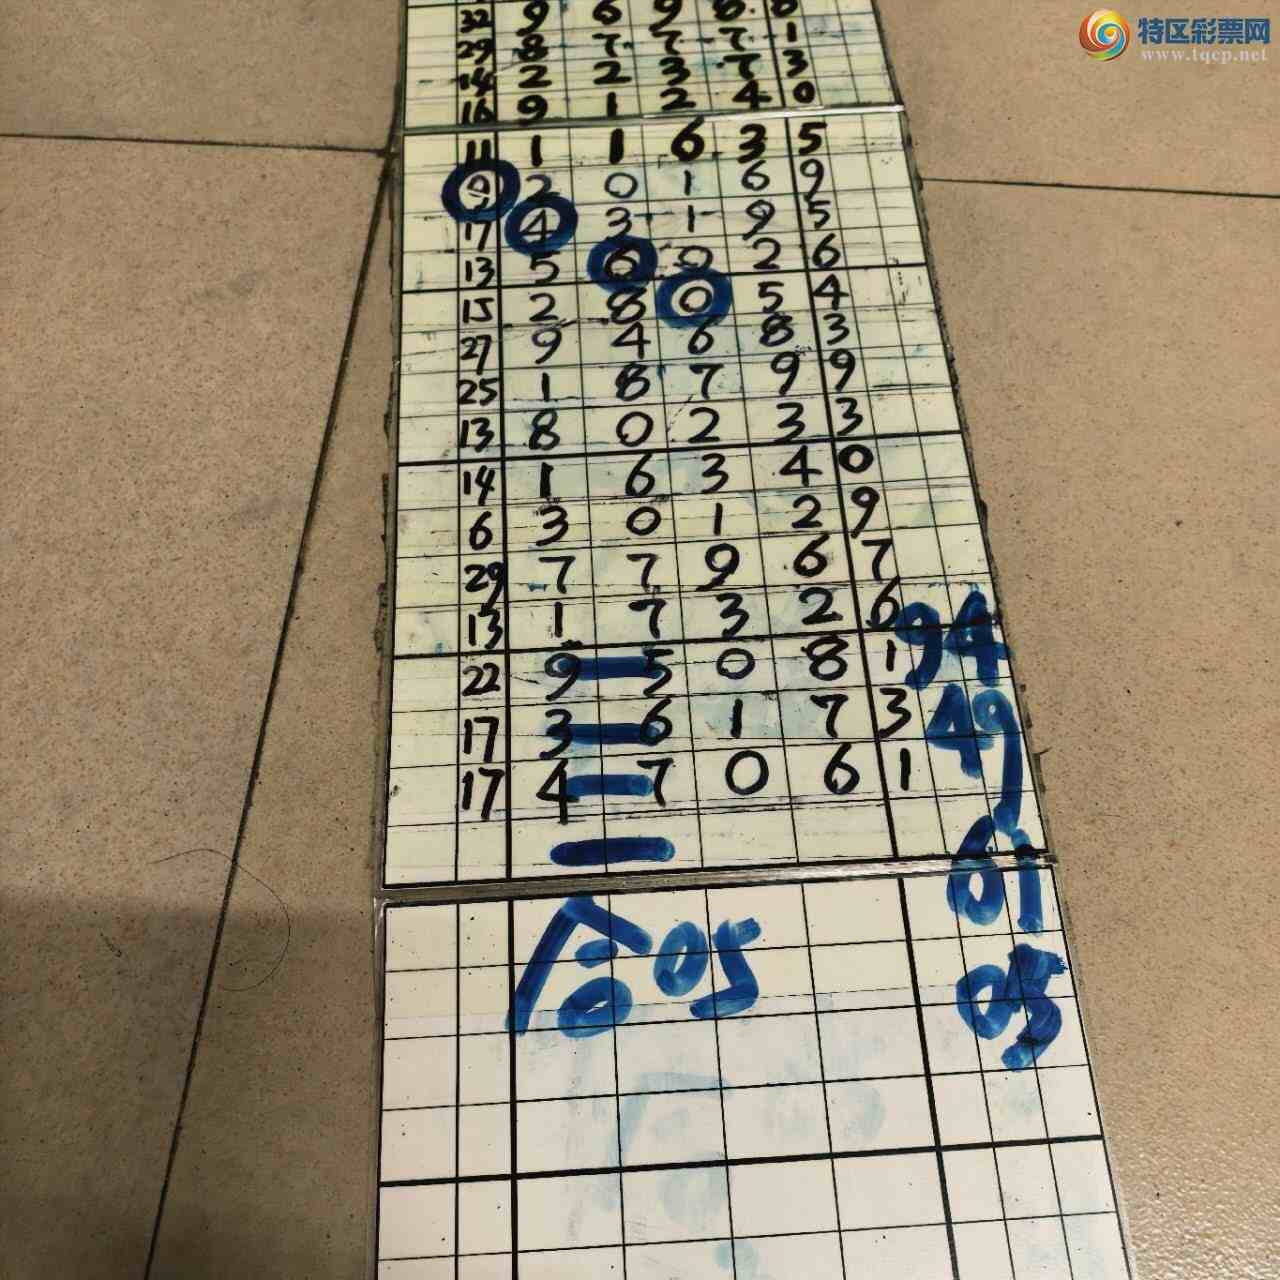 特区彩票网
www.tqcp.net
32 9 6 9 8 0
29 8 7 7 7 1
14 2 2 3 7 3
16 9 1 2 4 0
11 1 1 6 3 5
9 2 0 1 6 9
17 4 3 1 9 5
13 5 6 0 2 6
15 2 8 0 5 4
27 9 4 6 8 3
25 1 8 7 9 9
13 8 0 2 3 3
14 1 6 3 4 0
6 3 0 1 2 9
29 7 7 9 6 7
13 1 7 3 2 6
94
22 9 5 0 8 1
17 3 6 1 7 3
49
17 4 7 0 6 1
61
合05
05